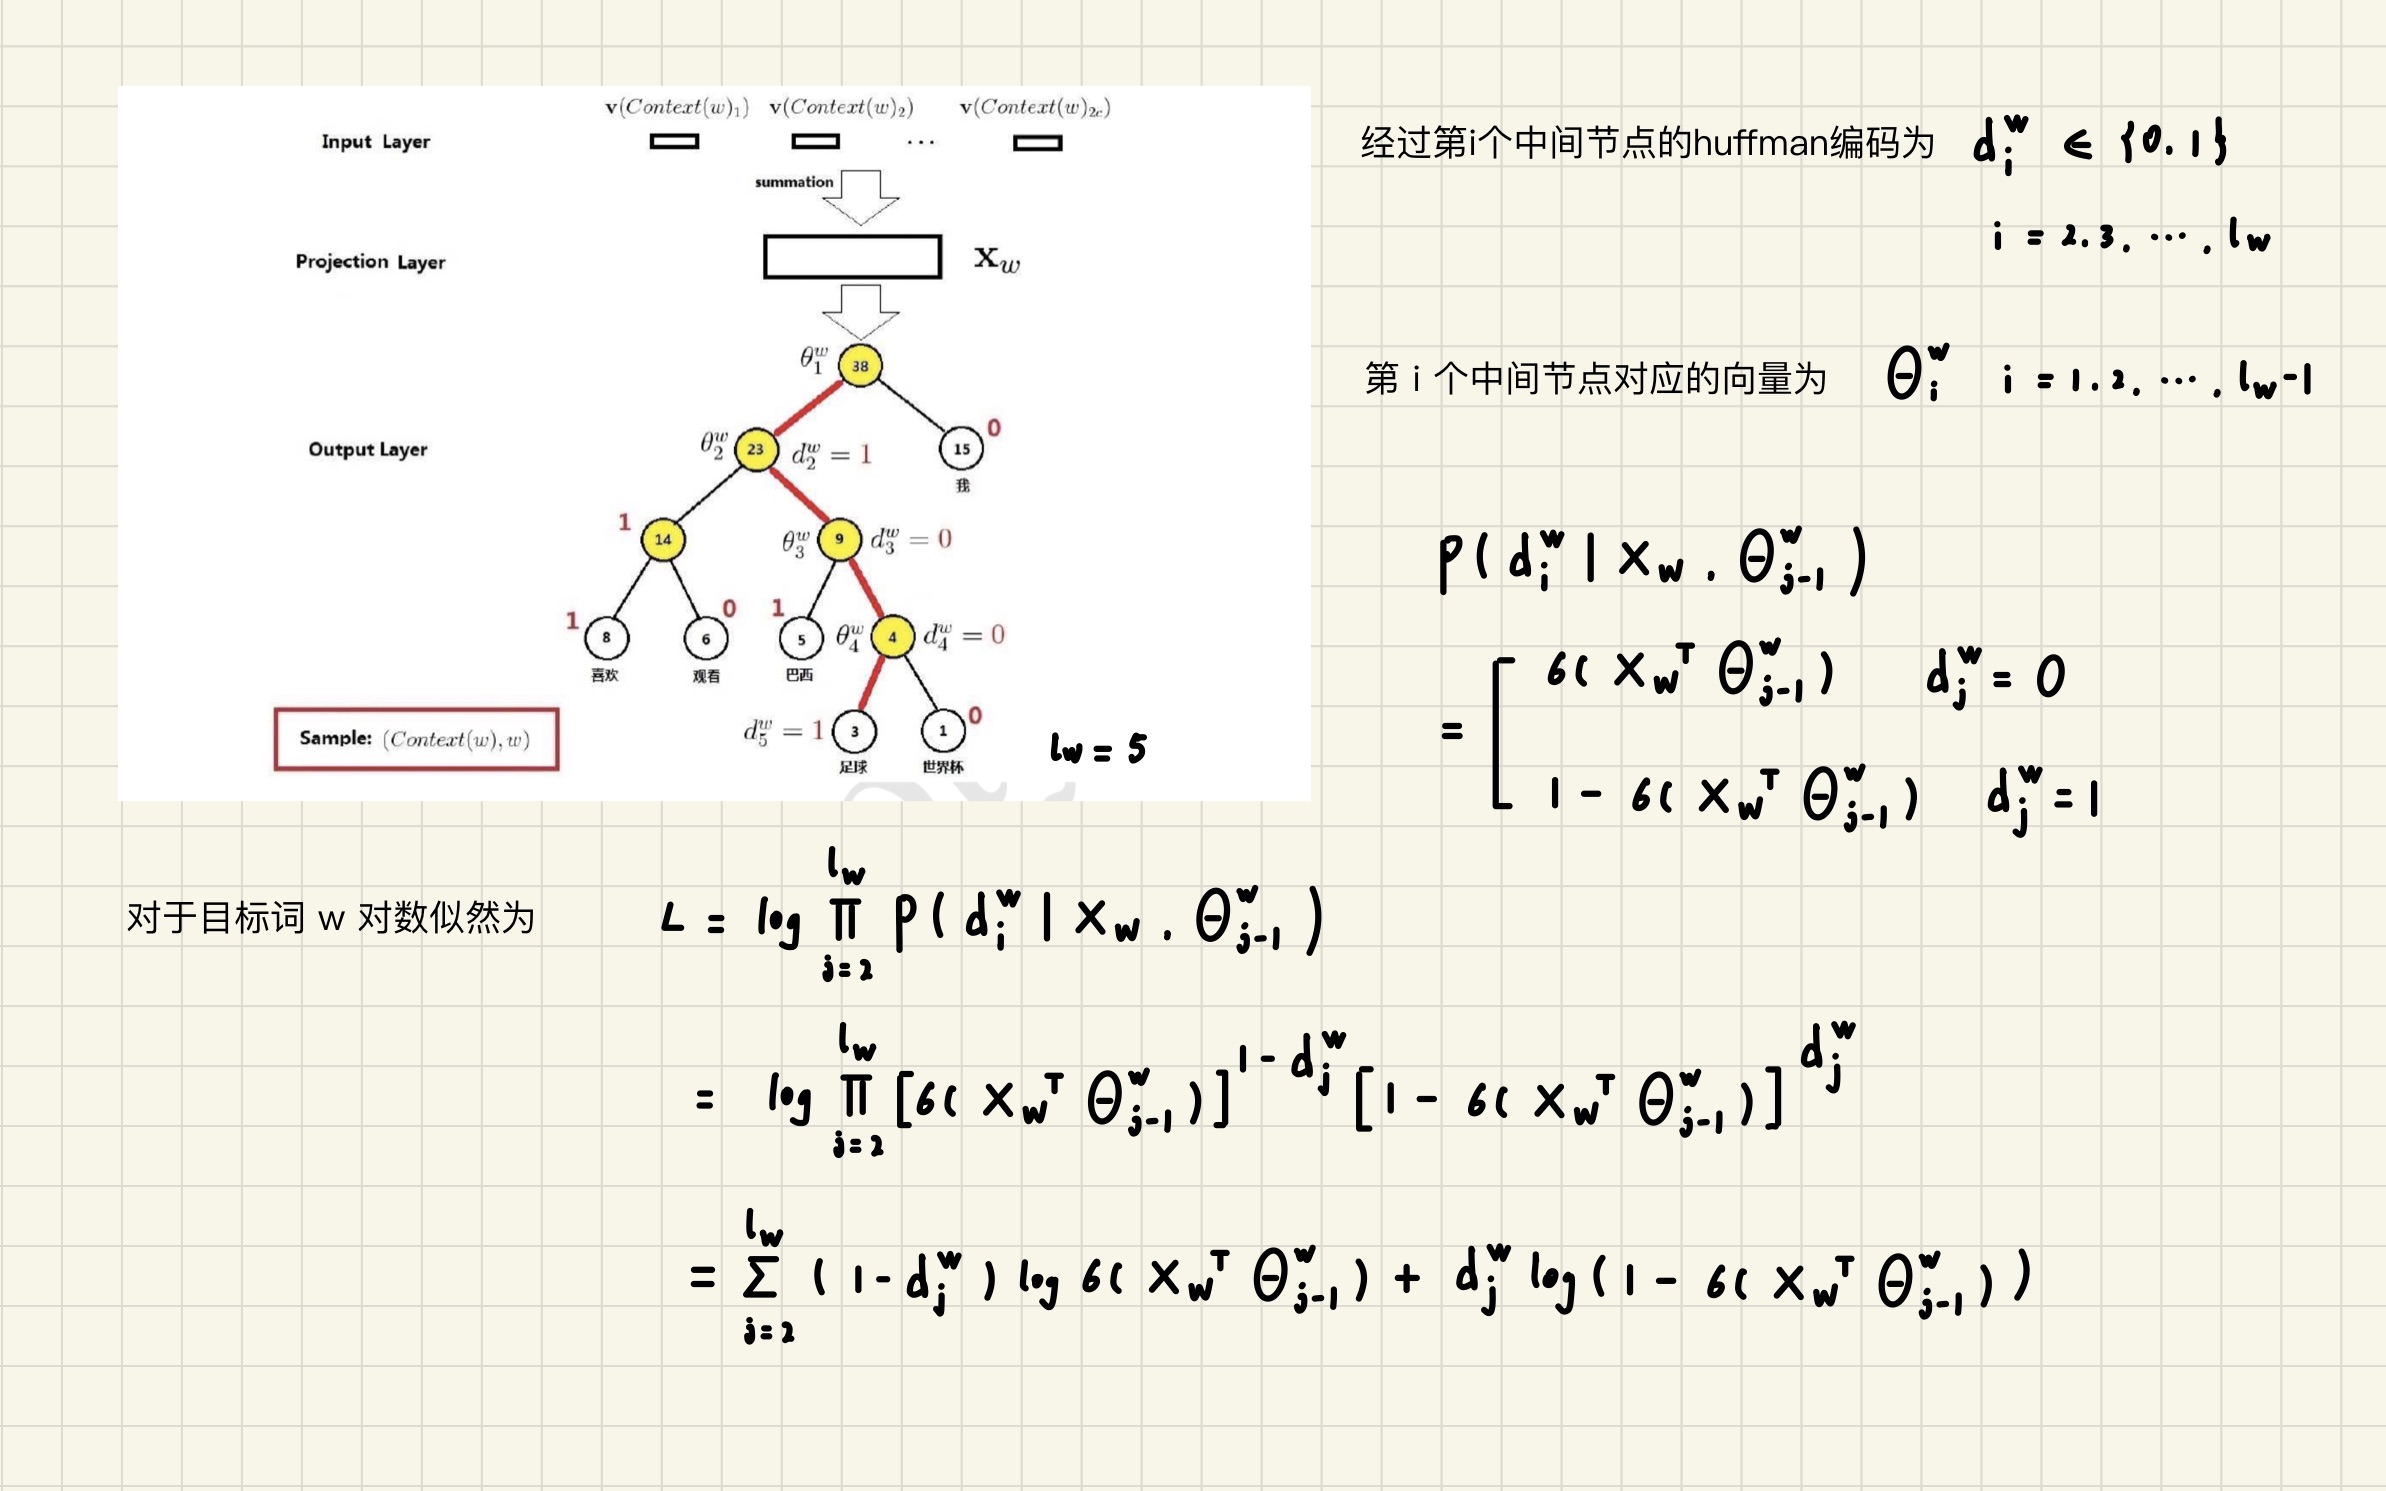 v(Context(w)₁) v(Context(w)₂) v(Context(w)₂c)
Input Layer ...
summation
Projection Layer
X_w
θ₁^w 38
Output Layer
θ₂^w 23 d₂^w = 1
15 0
我
1 14
θ₃^w 9 d₃^w = 0
1 8
喜欢
6 0
观看
1 5
巴西
θ₄^w 4 d₄^w = 0
d₅^w = 1 3
足球
1 0
世界杯
Sample: (Context(w), w)
l_w = 5
经过第i个中间节点的huffman编码为 d_i^w ∈ {0.1}
i = 2.3. ... . l_w
第 i 个中间节点对应的向量为 θ_i^w i = 1.2. ... . l_w-1
P( d_i^w | X_w . θ_{j-1}^w )
= [ 6( X_w^T θ_{j-1}^w ) d_j^w = 0
1 - 6( X_w^T θ_{j-1}^w ) d_j^w = 1
对于目标词 w 对数似然为 L = log ∏_{j=2}^{l_w} P( d_i^w | X_w . θ_{j-1}^w )
= log ∏_{j=2}^{l_w} [6( X_w^T θ_{j-1}^w )]^{1-d_j^w} [1 - 6( X_w^T θ_{j-1}^w )]^{d_j^w}
= Σ_{j=2}^{l_w} ( 1-d_j^w ) log 6( X_w^T θ_{j-1}^w ) + d_j^w log( 1 - 6( X_w^T θ_{j-1}^w ) )